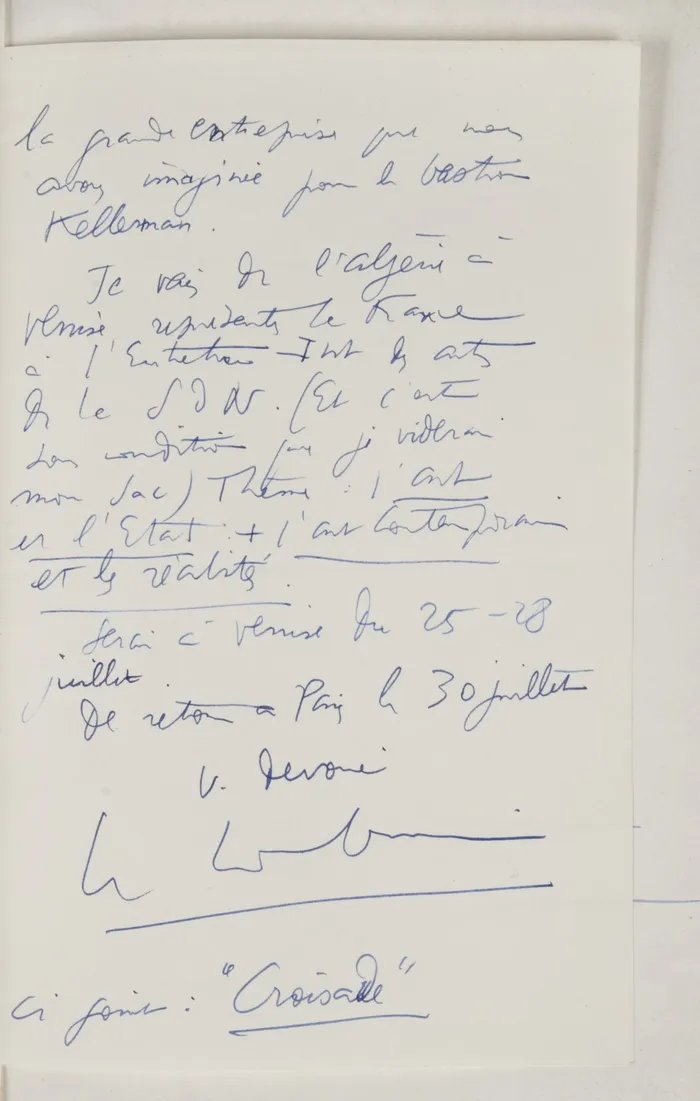 la grande entreprise que nous
avons imaginée pour le bastion
Kellerman.
Je vais de l'algérie à
venise représenter la France
à l'Entretien Int des arts
de la SDN. (Et c'est
sans condition que je viderai
mon sac) Thème : l'art
et l'Etat + l'art contemporain
et les réalités.
Serai à venise du 25-28
juillet.
De retour a Paris le 30 juillet
v. devoué
Le Corbusier
ci joint : "Croisade"